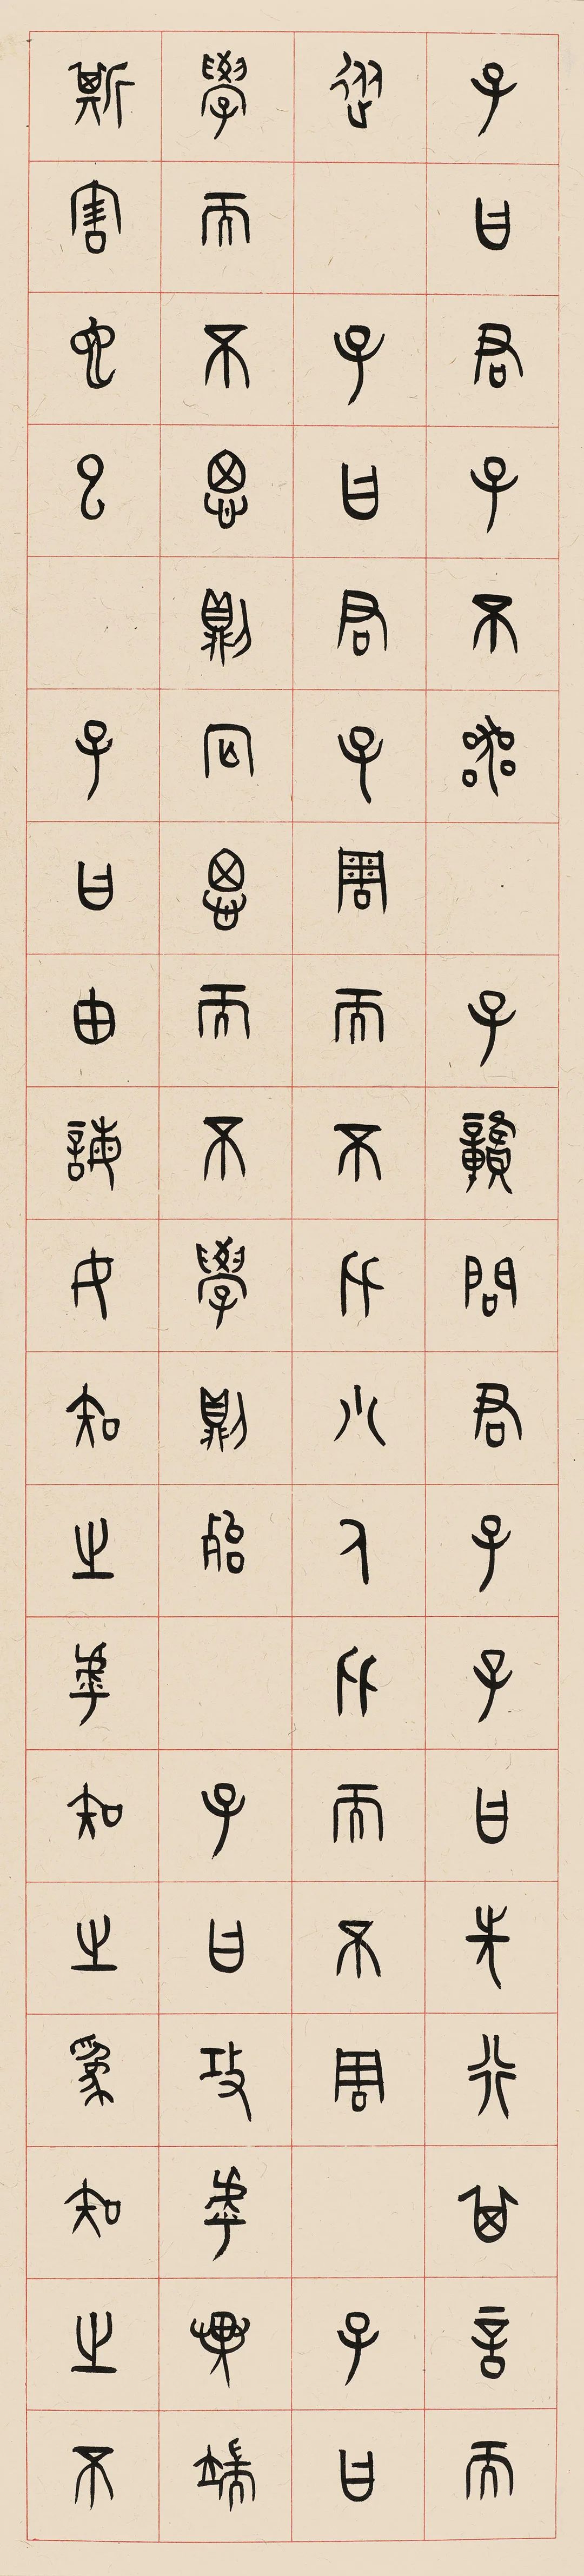 子曰君子不器 子贛問君子子曰先行其言而
從 子曰君子周而不比小人比而不周 子曰
學而不思則罔思而不學則殆 子曰攻乎異端
斯害也已 子曰由誨女知之乎知之為知之不